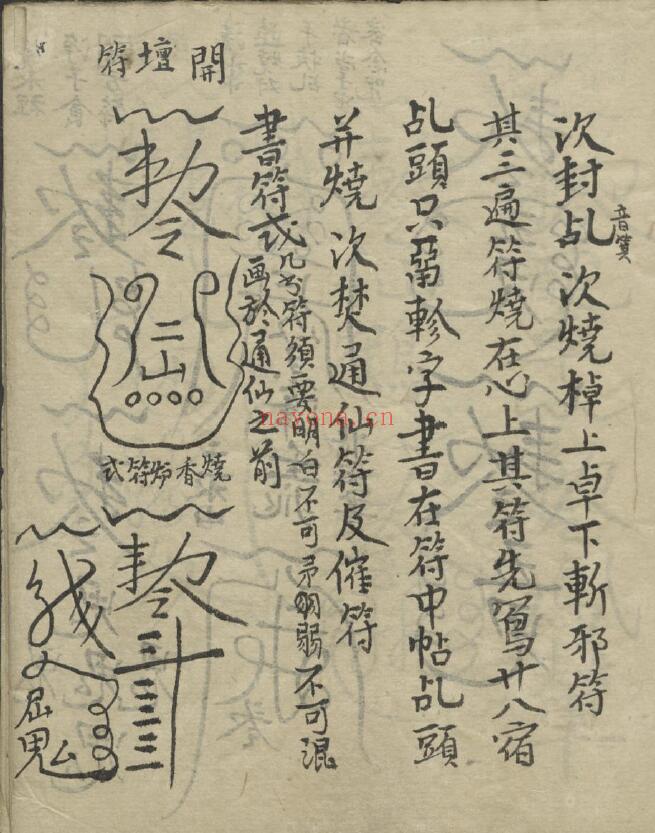 次封乩音箕次燒棹上卓下斬邪符
其三遍符燒在心上其符先寫廿八宿
乩頭只軫字書在符中帖乩頭
并燒次焚通仙符及催符
書符式凡书符須要明白不可弱不可混
画於通仙之前
開壇符
敕令
二山
燒香炉符式
敕令